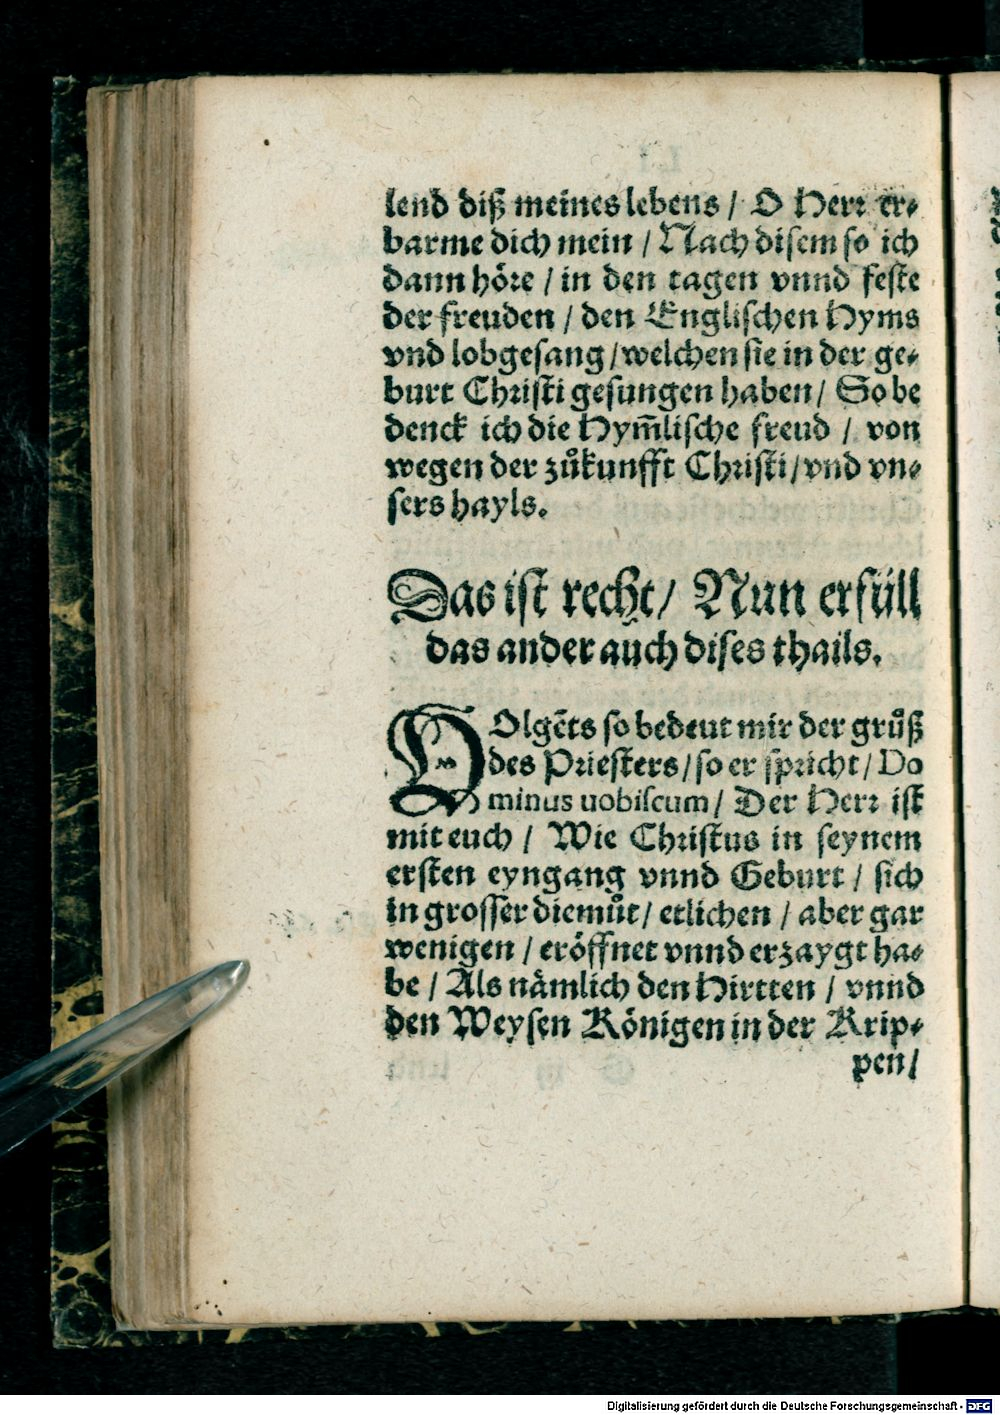 lend diß meines lebens / O Herr er⸗
barme dich mein / Nach disem so ich
dann höre / in den tagen vnnd feste
der freuden / den Englischen Hyms
vnd lobgesang / welchen sie in der ge⸗
burt Christi gesungen haben / So be
denck ich die Hym̄lische freud / von
wegen der zůkunfft Christi / vnd vn⸗
sers hayls.
Das ist recht / Nun erfüll
das ander auch dises thails.
VOlgēts so bedeut mir der grůß
des Priesters / so er spricht / Do
minus uobiscum / Der Herr ist
mit euch / Wie Christus in seynem
ersten eyngang vnnd Geburt / sich
in grosser diemůt / etlichen / aber gar
wenigen / eröffnet vnnd erzaygt ha⸗
be / Als nämlich den Hirtten / vnnd
den Weysen Königen in der Krip⸗
pen /
Digitalisierung gefördert durch die Deutsche Forschungsgemeinschaft - DFG